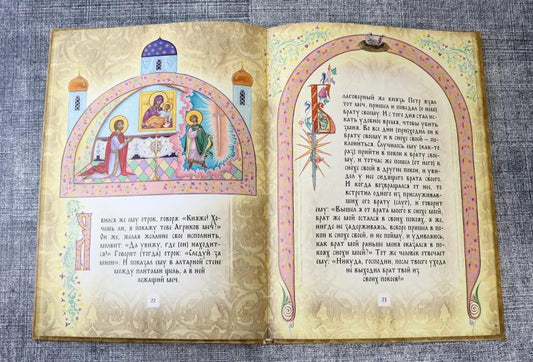 Явился же ему отрок, говоря: «Княже! Хо-
чешь ли, я покажу тебе Агриков меч?»
Он же, желая желание свое исполнить,
молвит: «Да увижу, где (он) находит-
ся!» Говорит (тогда) отрок: «Следуй за
мной». И показал ему в алтарной стене
между плитами щель, а в ней
лежащий меч.
22
Благоверный же князь Петр взял
тот меч, пришел и поведал (о нем)
брату своему. И с того дня стал ис-
кать удобное время, чтобы убить
змия. Во все дни (приходил он к
брату своему и к снохе своей — по-
клониться. Случилось ему (как-то
раз) прийти в покои к
брату своему, и тотчас же пошел (от него)
к снохе своей в другие покои, и увидел
у нее сидящего брата своего.
И когда возвращался от нее, то
встретил одного из прислуживав-
ших брату его (слуг), и говорит
ему: «Вышел я от брата моего к снохе моей,
брат же мой остался в своих покоях, я же,
нигде не задерживаясь, вскоре пришел в
покои к снохе своей, и не пойму, и удивляюсь,
как брат мой раньше меня оказался в
покоях снохи моей?» Тот же человек отвечает
ему: «Никуда, господин, после твоего ухода
не выходил брат твой из
своих покоев».
23